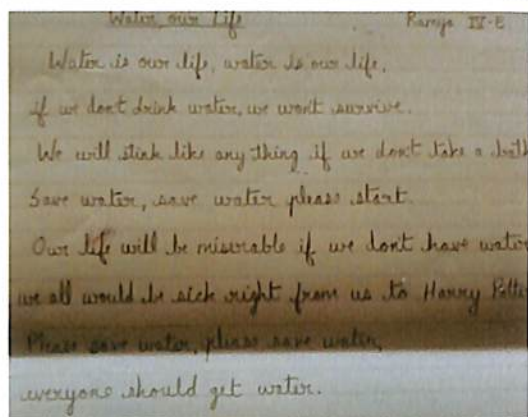 Water, our Life Ramya IV-E
Water is our life, water is our life,
if we dont drink water, we wont survive.
We will stink like any thing if we dont take a bath
Save water, save water please start.
Our life will be misirable if we dont have water
we all would be sick right from us to Harry Potter
Please save water, please save water,
everyone should get water.